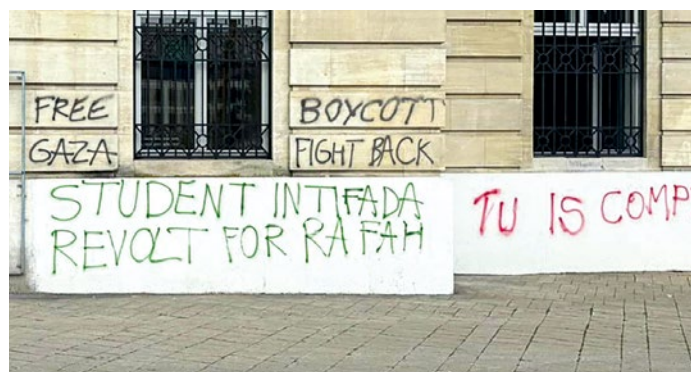 FREE
GAZA
BOYCOTT
FIGHT BACK
STUDENT INTIFADA
REVOLT FOR RAFAH
TU IS COMP